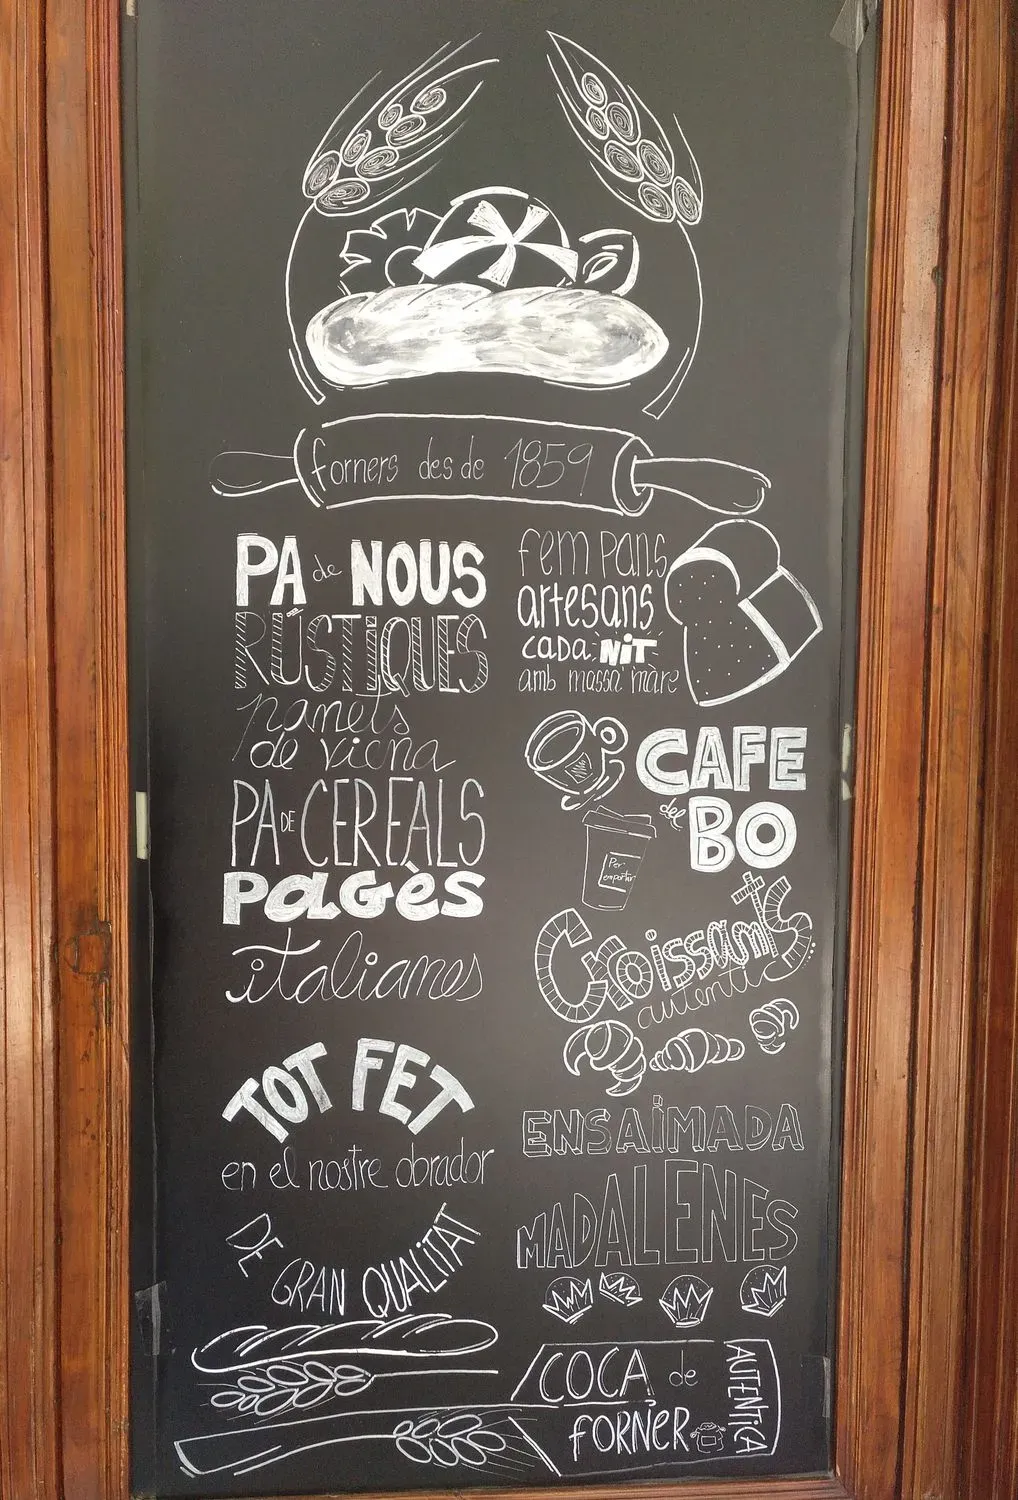 forners des de 1859
PA de NOUS
RÚSTIQUES
panets
de viena
PA DE CEREALS
PAGÈS
italianes
TOT FET
en el nostre obrador
DE GRAN QUALITAT
fem pans
artesans
cada NIT
amb massa mare
CAFE
del BO
Per
emportar
Croissants
autentics
ENSAÏMADA
MADALENES
COCA de
FORNER
AUTENTiCA